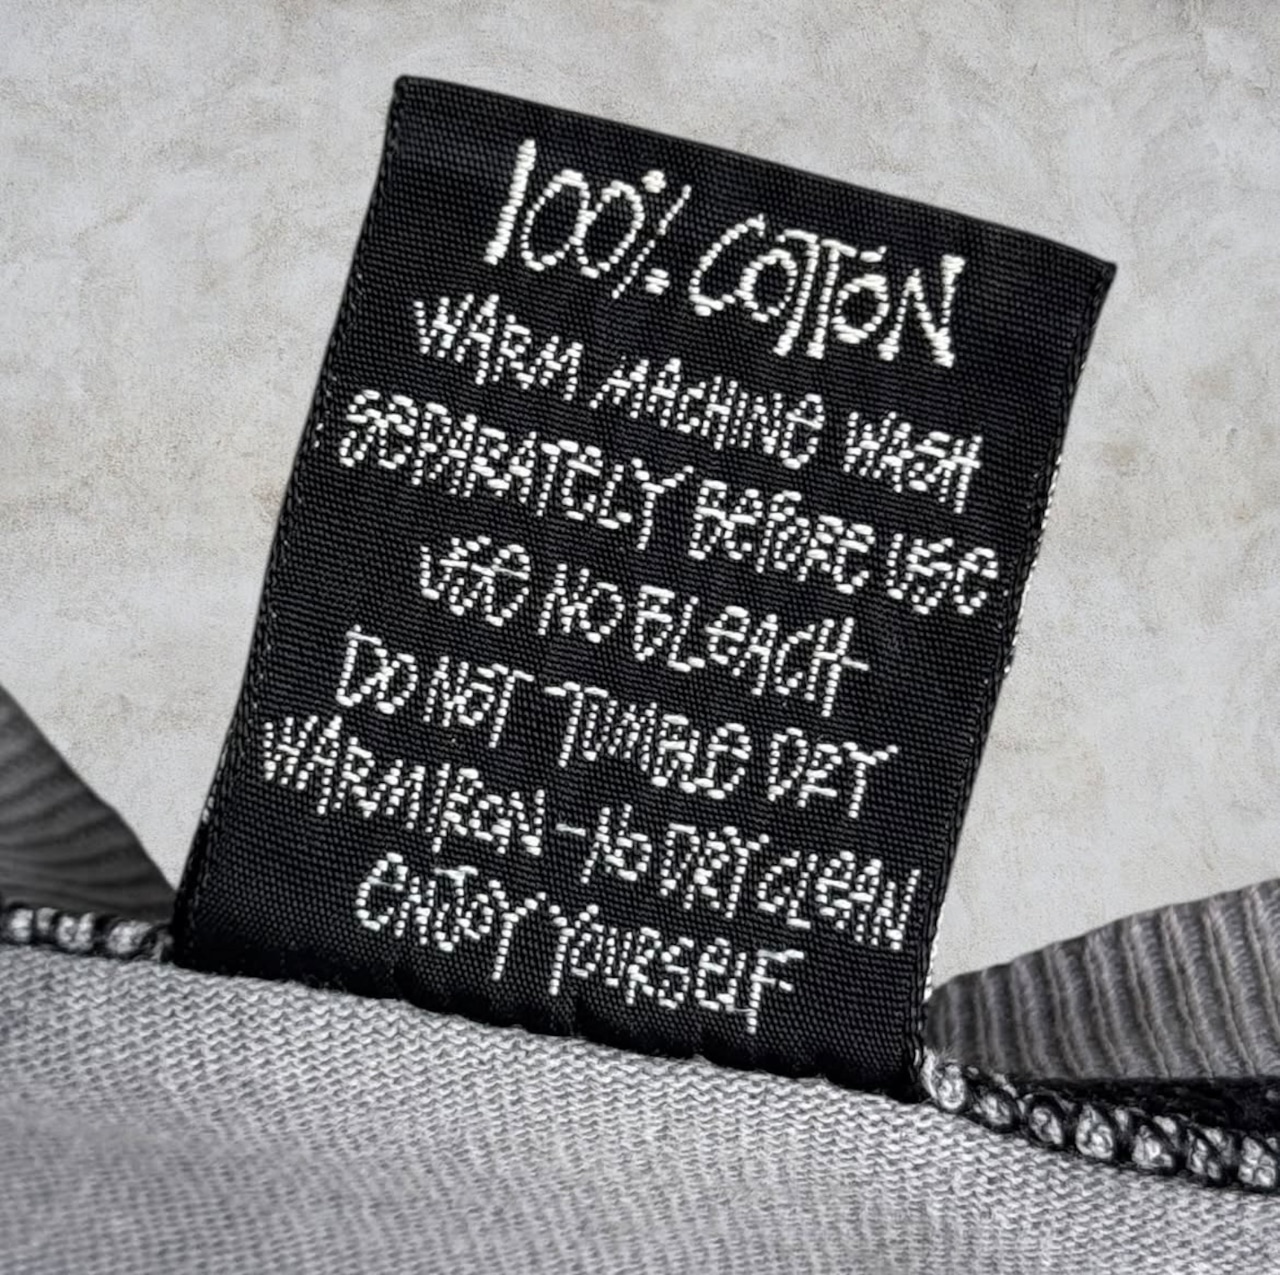 100% COTTON
WARM MACHINE WASH
SEPARATELY BEFORE USE
USE NO BLEACH
DO NOT TUMBLE DRY
WARM IRON - NO DRY CLEAN
ENJOY YOURSELF